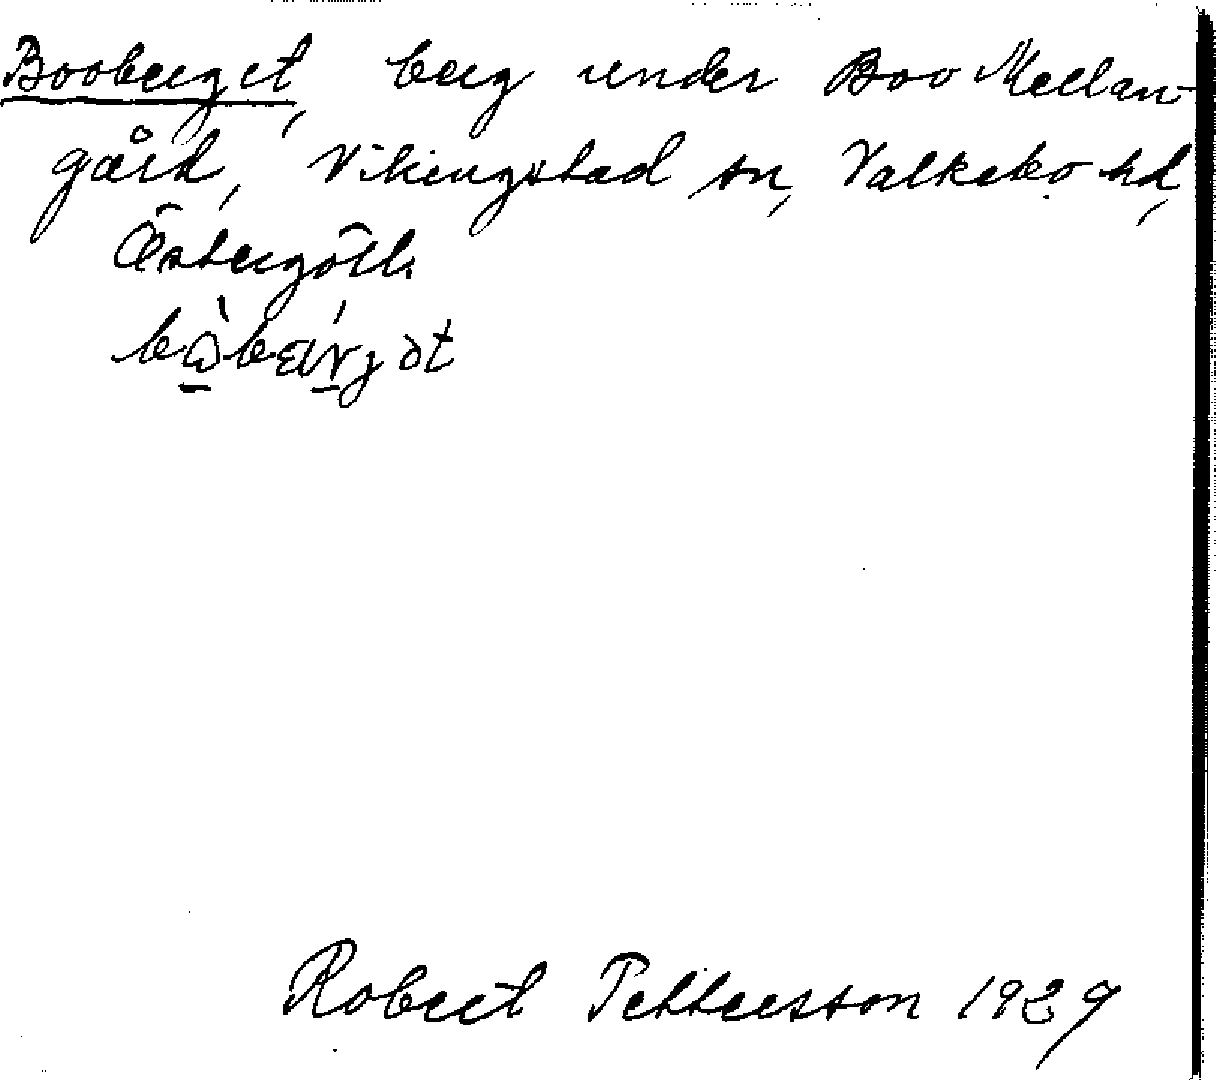 Booberget, berg under Boo Mellan-
gård, Vikingstad sn, Valkebo hd,
Östergötl.
Robert Pettersson 1929